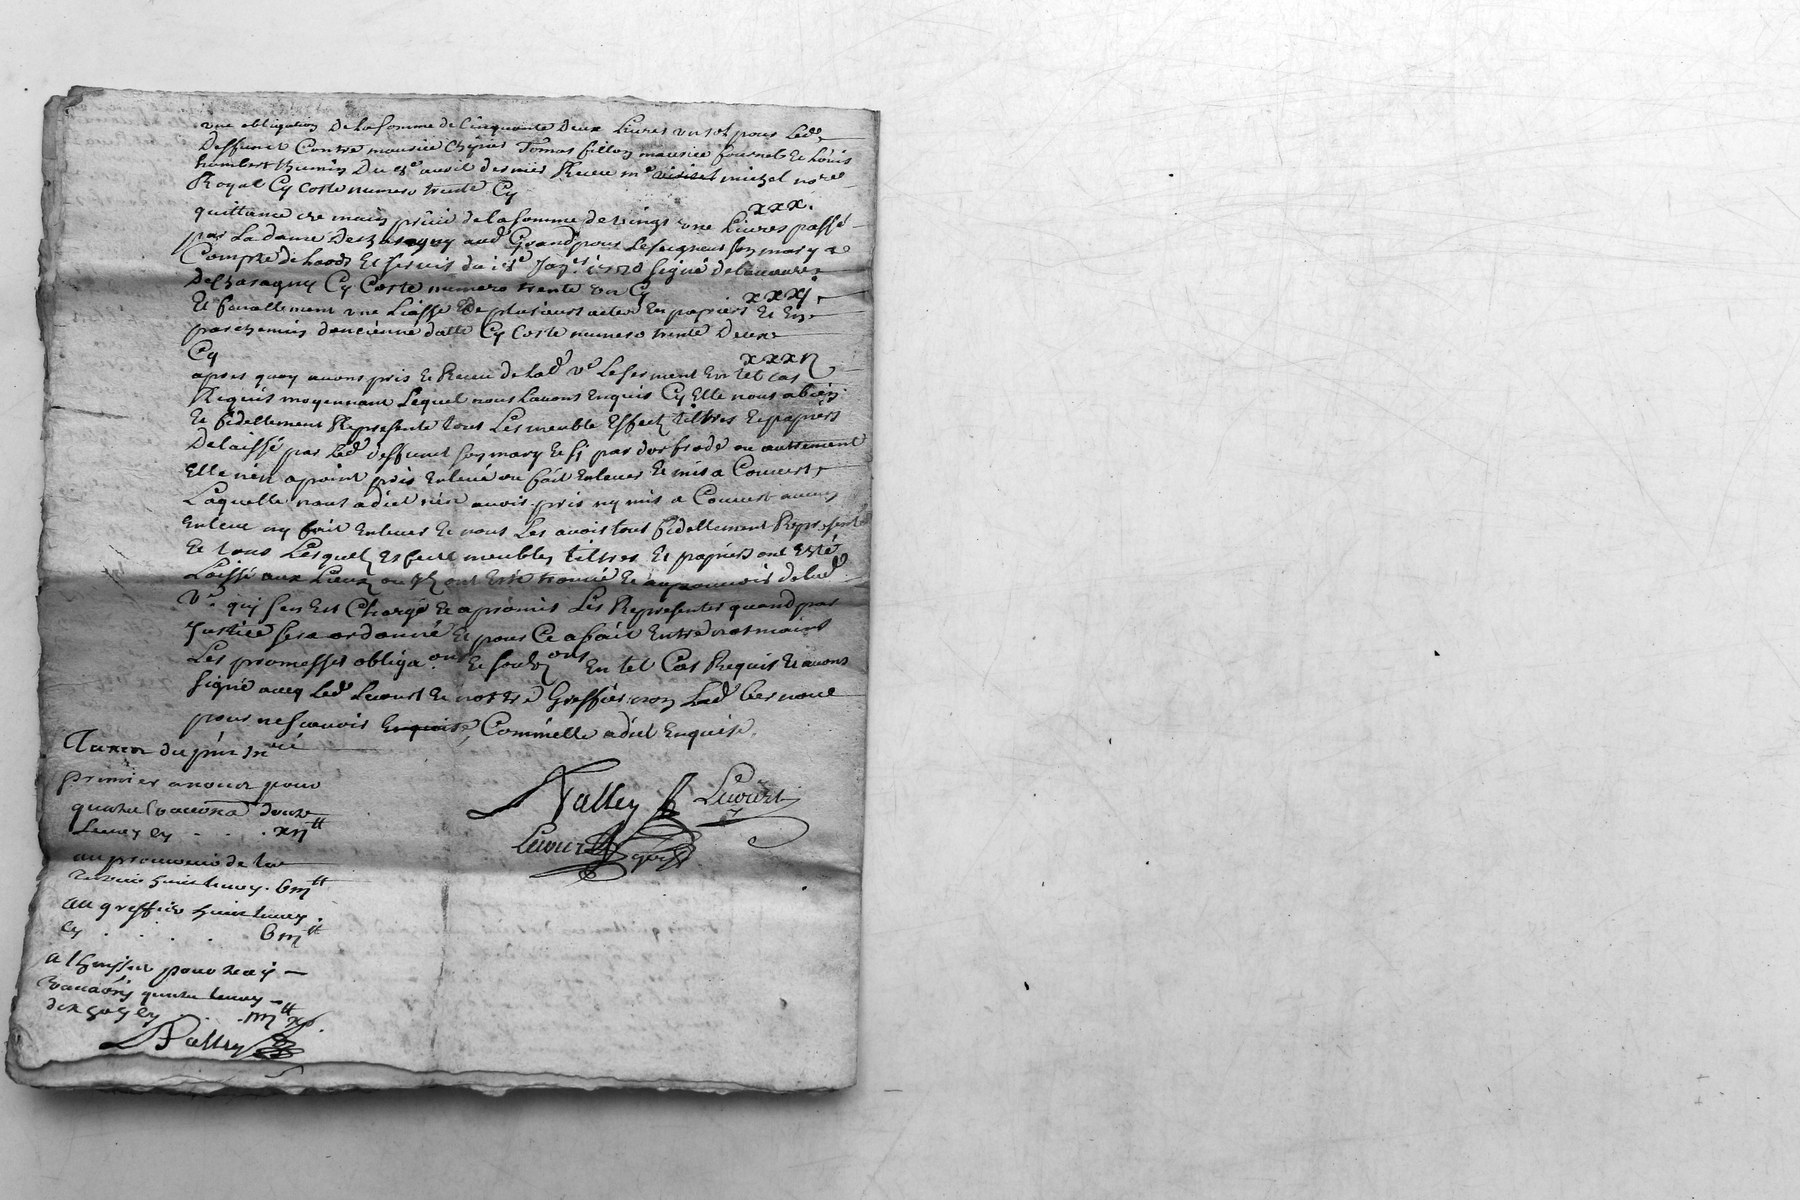 une obligation de la somme de Cinquante deux Livres un sol pour led.
deffunct Contre maurice Tomas fillon maurice fournel Et Louis
humbert du 8e avril dernier Receu me michel nore
Royal Cy Cotte numero trente Cy
xxx.
quittance de main privé de la somme de vingt une Livres passé
par La dame de Chasagny aud Grand pour Le seigneur son mary a
Compte de Laods Et servis du signé de
de Chasagny Cy Cotte numero trente un Cy
xxxj
Et finallement une Liasse de plusieurs actes En papiers Et En
parchemin dancienne datte Cy Cotte numero trente deux
Cy
xxxij
apres quoy avons pris Et Receu de lad ve Le serment En tel cas
Requis moyennant Lequel nous Lavons Enquis sy Elle nous a bien
Et fidellement Represente tous Les meuble Effectz tiltres Et papiers
delaissé par led deffunct son mary Et sy par dor frode ou autrement
Elle n'en a point pris Enlevé ou fait Enlever Et mis a Couvert
Laquelle nous a dict n'en avoir pris ny mis a Couvert aucun
Enlevé ny fait Enlever Et nous Les avoir tous fidellement Represente
Et tous Lesquelz Effectz meubles tiltres Et papiers ont Esté
Laissé aux Lieux ou ilz ont Esté trouvé Et au pouvoir de lad
Ve. qui sen Est Chargé Et a promis Les Representer quand par
Justice sera ordonné Et pour Ce a fait Entre nos mains
Les promesses obliga ons Et ons En tel Cas Requis Et avons
signé avec led Lecourt Et nottre Greffier non Lad
pour ne scavoir Enquise, Comme Elle a dict Enquise.
Taxes du pnt Inre
premier a nous pour
quatre vacations douze
Livres cy . . . xij tt
au procureur de la
huit livres. viij tt
au greffier huit livres
cy . . . . viij tt
a l'huissier pour
vacations quatre livres
dix sols cy . . . iiij tt xs.
Valley Lecourt
Lecourt
Valley